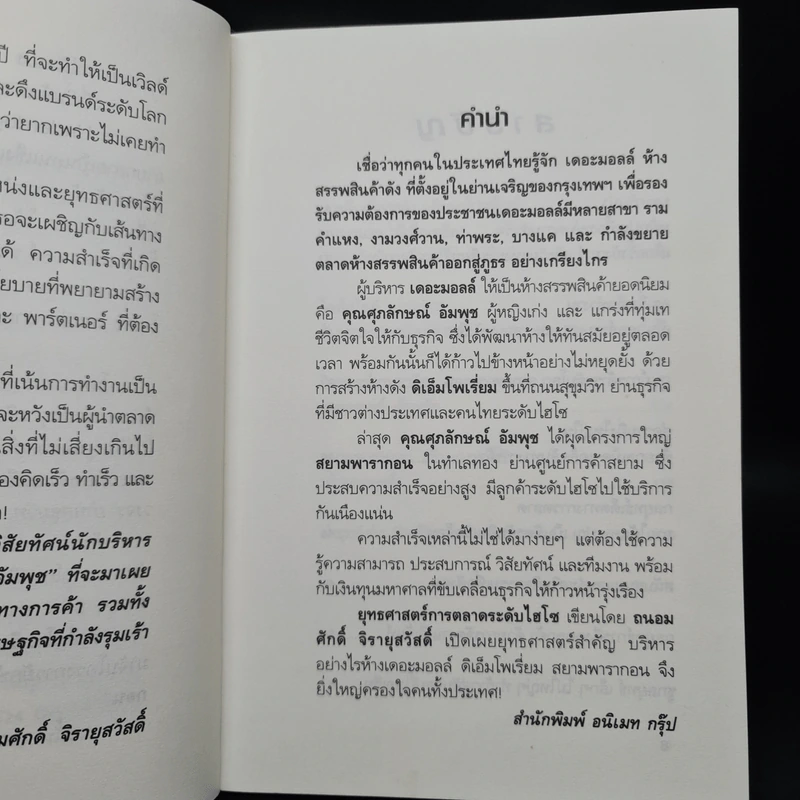 ปี ที่จะทำให้เป็นเวิลด์
ละดึงแบรนด์ระดับโลก
ว่ายากเพราะไม่เคยทำ
หน่งและยุทธศาสตร์ที่
รอจะเผชิญกับเส้นทาง
ด้ ความสำเร็จที่เกิด
ยบายที่พยายามสร้าง
ะ พาร์ตเนอร์ ที่ต้อง
ที่เน้นการทำงานเป็น
จะหวังเป็นผู้นำตลาด
สิ่งที่ไม่เสี่ยงเกินไป
องคิดเร็ว ทำเร็ว และ
วิสัยทัศน์นักบริหาร
อัมพุช" ที่จะมาเผย
ทางการค้า รวมทั้ง
ษฐกิจที่กำลังรุมเร้า
มศักดิ์ จิรายุสวัสดิ์
คำนำ
เชื่อว่าทุกคนในประเทศไทยรู้จัก เดอะมอลล์ ห้าง
สรรพสินค้าดัง ที่ตั้งอยู่ในย่านเจริญของกรุงเทพฯ เพื่อรอง
รับความต้องการของประชาชนเดอะมอลล์มีหลายสาขา ราม
คำแหง, งามวงศ์วาน, ท่าพระ, บางแค และ กำลังขยาย
ตลาดห้างสรรพสินค้าออกสู่ภูธร อย่างเกรียงไกร
ผู้บริหาร เดอะมอลล์ ให้เป็นห้างสรรพสินค้ายอดนิยม
คือ คุณศุภลักษณ์ อัมพุช ผู้หญิงเก่ง และ แกร่งที่ทุ่มเท
ชีวิตจิตใจให้กับธุรกิจ ซึ่งได้พัฒนาห้างให้ทันสมัยอยู่ตลอด
เวลา พร้อมกันนั้นก็ได้ก้าวไปข้างหน้าอย่างไม่หยุดยั้ง ด้วย
การสร้างห้างดัง ดิเอ็มโพเรี่ยม ขึ้นที่ถนนสุขุมวิท ย่านธุรกิจ
ที่มีชาวต่างประเทศและคนไทยระดับไฮโซ
ล่าสุด คุณศุภลักษณ์ อัมพุช ได้ผุดโครงการใหญ่
สยามพารากอน ในทำเลทอง ย่านศูนย์การค้าสยาม ซึ่ง
ประสบความสำเร็จอย่างสูง มีลูกค้าระดับไฮโซไปใช้บริการ
กันเนืองแน่น
ความสำเร็จเหล่านี้ไม่ใช่ได้มาง่ายๆ แต่ต้องใช้ความ
รู้ความสามารถ ประสบการณ์ วิสัยทัศน์ และทีมงาน พร้อม
กับเงินทุนมหาศาลที่ขับเคลื่อนธุรกิจให้ก้าวหน้ารุ่งเรือง
ยุทธศาสตร์การตลาดระดับไฮโซ เขียนโดย ถนอม
ศักดิ์ จิรายุสวัสดิ์ เปิดเผยยุทธศาสตร์สำคัญ บริหาร
อย่างไรห้างเดอะมอลล์ ดิเอ็มโพเรี่ยม สยามพารากอน จึง
ยิ่งใหญ่ครองใจคนทั้งประเทศ!
สำนักพิมพ์ อนิเมท กรุ๊ป